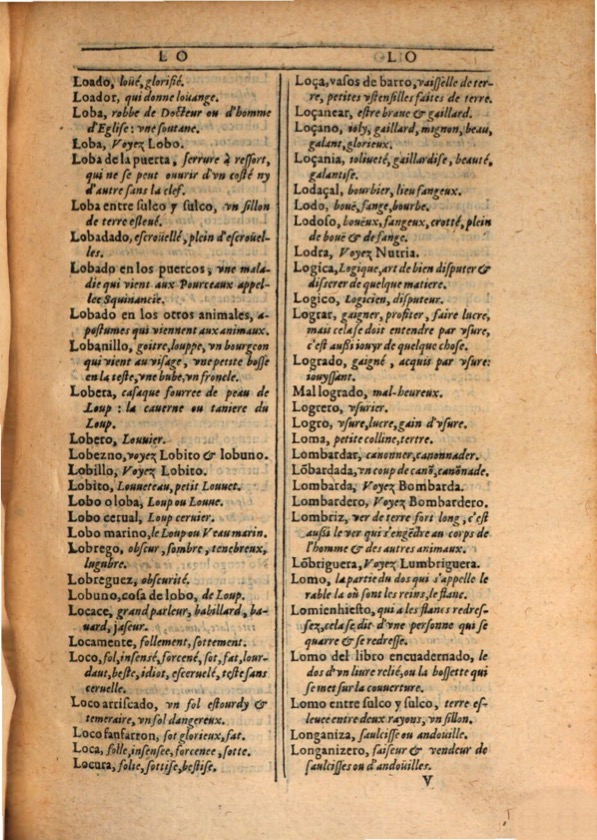 L O
L O
Loado, loüé, glorifié.
Loador, qui donne loüange.
Loba, robbe de Docteur ou d'homme
d'Eglise: vne soutane.
Loba, Voyez Lobo.
Loba de la puerta, serrure à ressort,
qui ne se peut ouurir d'vn costé ny
d'autre sans la clef.
Loba entre sulco y sulco, vn sillon
de terre esleué.
Lobadado, escroüellé, plein d'escroüel-
les.
Lobado en los puercos, vne mala-
die qui vient aux Pourceaux appel-
lee Squinancie.
Lobado en los otros animales, a-
postumes qui viennent aux animaux.
Lobanillo, goitre, louppe, vn bourgeon
qui vient au visage, vne petite bosse
en la teste, vne bube, vn froncle.
Lobera, casaque fourree de peau de
Loup: la cauerne ou taniere du
Loup.
Lobero, Louuier.
Lobezno, voyez Lobito & lobuno.
Lobillo, Voyez Lobito.
Lobito, Louueteau, petit Louuet.
Lobo o loba, Loup ou Louue.
Lobo cerual, Loup ceruier.
Lobo marino, le Loup ou Veau marin.
Lobrego, obscur, sombre, tenebreux,
lugubre.
Lobreguez, obscurité.
Lobuno, cosa de lobo, de Loup.
Locace, grand parleur, babillard, ba-
uard, jaseur.
Locamente, follement, sottement.
Loco, fol, insensé, forcené, sot, fat, lour-
daut, beste, idiot, esceruelé, teste sans
ceruelle.
Loco arriscado, vn fol estourdy &
temeraire, vn fol dangereux.
Loco fanfarron, sot glorieux, fat.
Loca, folle, insensee, forcenee, sotte.
Locura, folie, sottise, bestise.
Loça, vasos de barro, vaisselle de ter-
re, petites vstensilles faites de terre.
Loçanear, estre braue & gaillard.
Loçano, ioly, gaillard, mignon, beau,
galant, glorieux.
Loçania, ioliueté, gaillardise, beauté,
galantise.
Lodaçal, bourbier, lieu fangeux.
Lodo, bouë, fange, bourbe.
Lodoso, boüeux, fangeux, crotté, plein
de bouë & de fange.
Lodra, Voyez Nutria.
Logica, Logique, art de bien disputer &
discerer de quelque matiere.
Logico, Logicien, disputeur.
Lograr, gaigner, profiter, faire lucre,
mais cela se doit entendre par vsure,
c'est aussi iouyr de quelque chose.
Logrado, gaigné, acquis par vsure:
iouyssant.
Mal logrado, mal-heureux.
Logrero, vsurier.
Logro, vsure, lucre, gain d'vsure.
Loma, petite colline, tertre.
Lombardar, canonner, canonnader.
Lõbardada, vn coup de canõ, canõnade.
Lombarda, Voyez Bombarda.
Lombardero, Voyez Bombardero.
Lombriz, ver de terre fort long, c'est
aussi le ver qui s'engẽdre au corps de
l'homme & des autres animaux.
Lõbriguera, Voyez Lumbriguera.
Lomo, la partie du dos qui s'appelle le
rable là où sont les reins, le flanc.
Lomienhiesto, qui a les flancs redres-
sez, cela se dit d'vne personne qui se
quarre & se redresse.
Lomo del libro encuadernado, le
dos d'vn liure relié, ou la bossette qui
se met sur la couuerture.
Lomo entre sulco y sulco, terre es-
leuee entre deux rayons, vn sillon.
Longaniza, saulcisse ou andouille.
Longanizero, faiseur & vendeur de
saulcisses ou d'andoüilles.
V